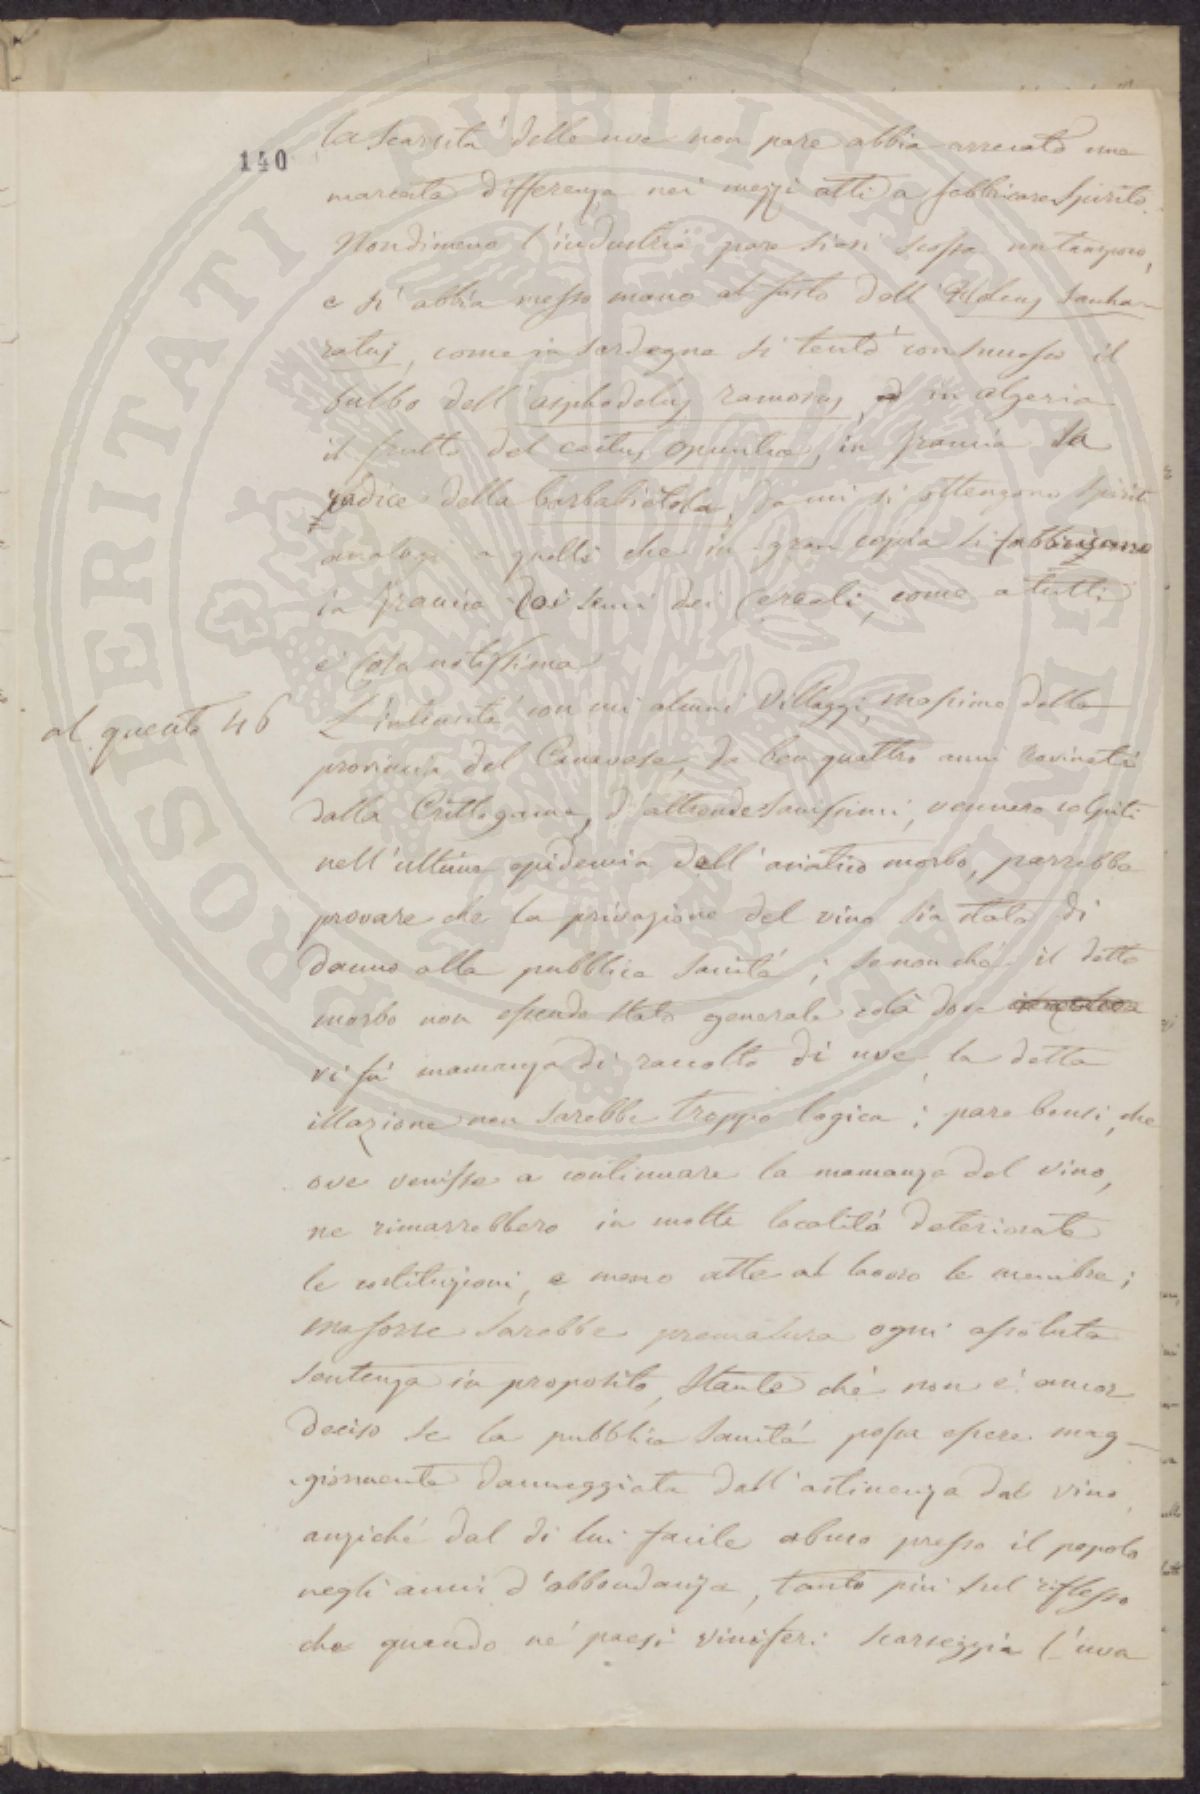 140
la scarsità delle uve non pare abbia arrecato una
marcata differenza nei mezzi atti a fabbricare spirito.
Nondimeno l'industria pare siasi scossa un tantino,
e si abbia messo mano al fusto dell'Holcus saccha-
ratus, come in Sardegna si tentò con successo il
bulbo dell'asphodelus ramosus, ed in Algeria
il frutto del cactus opuntia, in Francia la
radice della barbabietola, da cui si ottengono spiriti
analoghi a quelli che in gran copia si fabbricano
in Francia dai semi dei Cereali, come a tutti
è cosa notissima
al quesito 46
L'intensità con cui alcuni villaggi, massime della
provincia del Canavese, da ben quattro anni rovinati
dalla Crittogama, d'altronde sanissimi, vennero colpiti
nell'ultima epidemia dell'asiatico morbo, parrebbe
provare che la privazione del vino sia stata di
danno alla pubblica sanità; se non che il detto
morbo non essendo stato generale colà dove
vi fu mancanza di raccolto di uve, la detta
illazione non sarebbe troppo logica; pare bensì, che
ove venisse a continuare la mancanza del vino,
ne rimarrebbero in molte località deteriorate
le costituzioni, e meno atte al lavoro le membra;
ma forse sarebbe prematura ogni assoluta
sentenza in proposito, stante chè non è ancor
deciso se la pubblica sanità possa essere mag-
giormente danneggiata dall'astinenza dal vino,
anziché dal di lui facile abuso presso il popolo
negli anni d'abbondanza, tanto più sul riflesso
che quando ne' paesi viniferi scarseggia l'uva
ROSSERITATI PUBLICAE